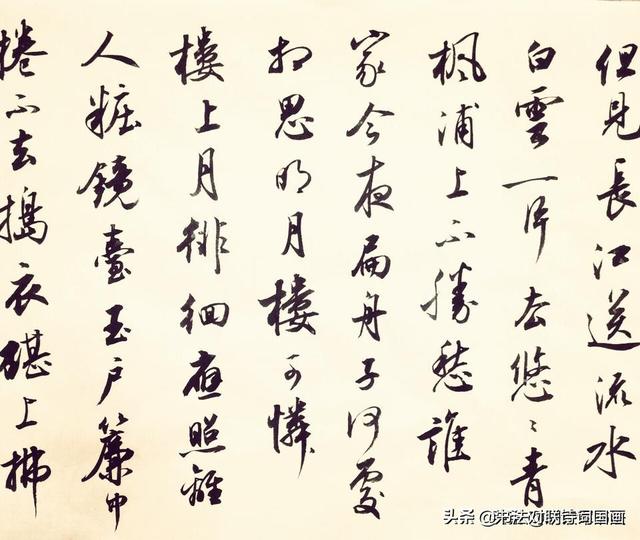 但見長江送流水
白雲一片去悠〻青
楓浦上不勝愁誰
家今夜扁舟子何處
相思明月樓可憐
樓上月徘徊應照離
人粧鏡臺玉戶簾中
捲不去搗衣砧上拂
头条 @书法对联诗词国画